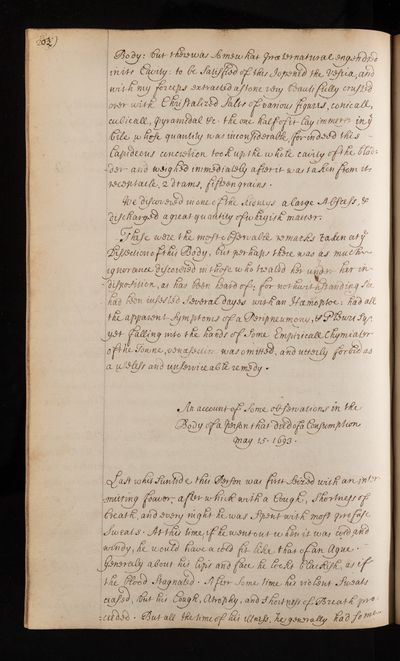 Body: but there was somewhat præternatural engendred
in its Cavity: to be satisfied of this I opened the Vesica, and
with my forceps extracted a stone very beautifully crusted
over with Chrystalized Salts of various figures, conicall,
cubicall, pyramidal &c. the one half of it lay immers'd in yͤ
bile, whose quantity was inconsiderable, for indeed this
Lapideous concretion took up the whole cavity of the blad-
der and weighed immediately after it was taken from its
receptacle, 2 drams, fifteen grains.
We discovered in one of the kidneys a large Abscess, &
discharged a great quantity of wheyish matter.
These were the most observable remarks taken at yͤ
Dissection of this Body, but perhaps there was as much
ignorance discovered in those who treated her under her in-
disposition, as has been heard of; for notwithstanding she
had been infested several dayes with an Hæmoptoe: had all
the apparent symptoms of a Peripneumony, & Pleurisy,
yet falling into the hands of some Empiricall Chymiater
of the Towne, venasectio was omitted, and utterly forbid as
a useless and unserviceable remedy.
An account of Some observations in the
Body of a person that died of a Consumption
May 15. 1693.
Last whitsuntide this Person was first seized with an inter-
mitting feaver, after which with a Cough, shortness of
breath, and every night he was spent with most profuse
Sweats. At this time, if he went out when it was cold and
windy, he would have a cold fit like that of an Ague.
Generaly about his lips and face he lookt blackish, as if
the blood stagnated. After some time his violent Sweats
ceased, but his Cough, Atrophy, and shortness of Breath pro-
ceeded. But all the time of his illness, he generally had some